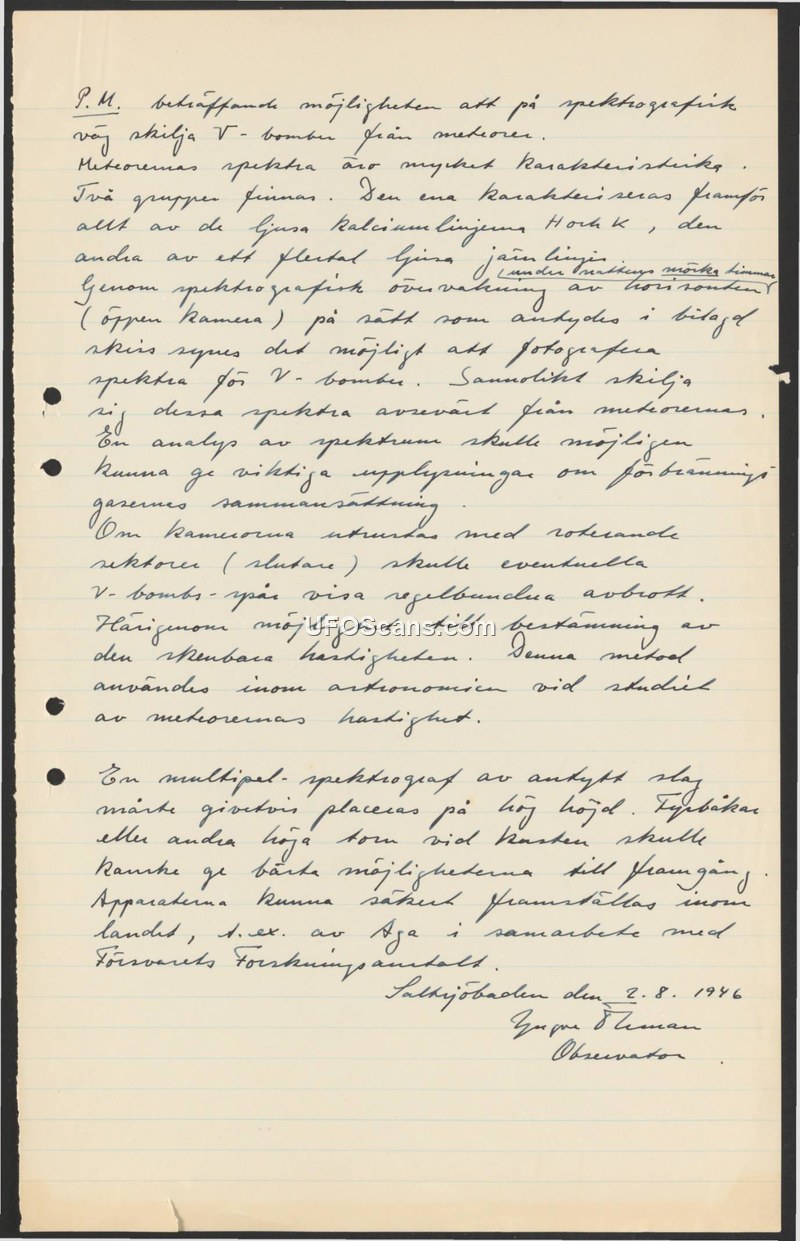 P.M. beträffande möjligheten att på spektrografisk
väg skilja V-bomber från meteorer.
Meteorernas spektra äro mycket karakteristiska.
Två grupper finnas. Den ena karakteriseras framför
allt av de ljusa kalciumlinjerna H och K, den
andra av ett flertal ljusa järnlinjer
(under nattens mörka timmar)
Genom spektrografisk övervakning av horisonten
(öppen kamera) på sätt som antydes i bilagd
skiss synes det möjligt att fotografera
spektra för V-bomber. Sannolikt skilja
sig dessa spektra avsevärt från meteorernas.
En analys av spektrum skulle möjligen
kunna ge viktiga upplysningar om förbrännings
gasernas sammansättning.
Om kamerorna utrustas med roterande
sektorer (slutare) skulle eventuella
V-bombs-spår visa regelbundna avbrott.
Härigenom möjliggöres till bestämning av
den skenbara hastigheten. Denna metod
användes inom astronomien vid studiet
av meteorernas hastighet.
En multipel-spektrograf av antytt slag
måste givetvis placeras på hög höjd. Fyrbåkar
eller andra höga torn vid kusten skulle
kanske ge bästa möjligheterna till framgång.
Apparaterna kunna säkert framställas inom
landet, t.ex. av Aga i samarbete med
Försvarets Forskningsanstalt.
Saltsjöbaden den 2.8. 1946
Yngve Öhman
Observator
UFOScans.com